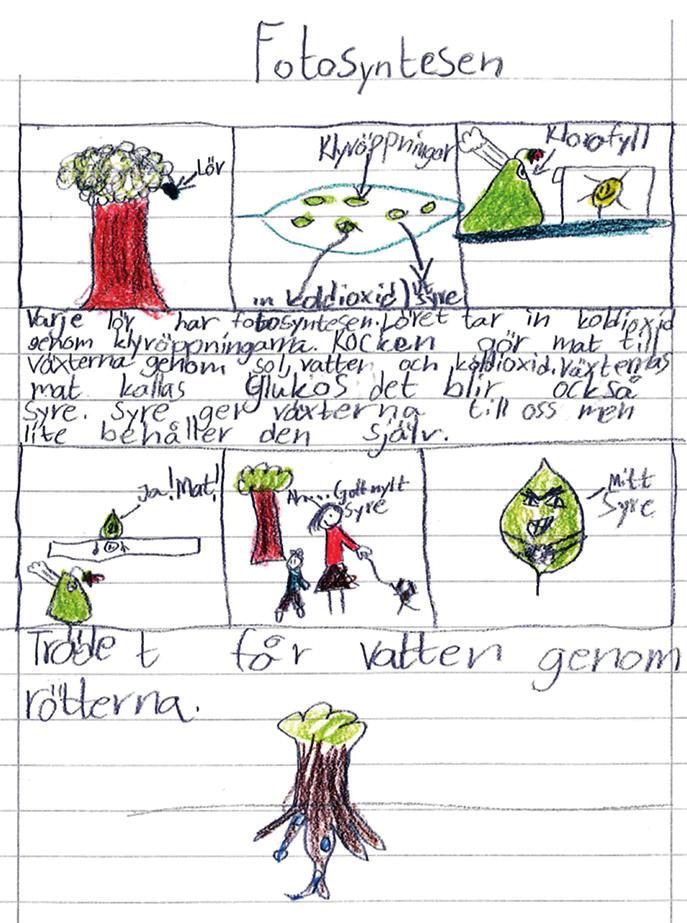 Fotosyntesen
Lör
Klyvöppningar
Klorofyll
in koldioxid
Syre
Varje lör har fotosyntesen. Löret tar in koldioxid
genom klyvöppningarna. Kocken gör mat till
växterna genom sol, vatten och koldioxid. Växternas
mat kallas Glukos det blir också
Syre. Syre ger växterna till oss men
lite behåller den själv.
Ja! Mat!
Gott nytt
Syre
Mitt
Syre
Trädet får vatten genom
rötterna.